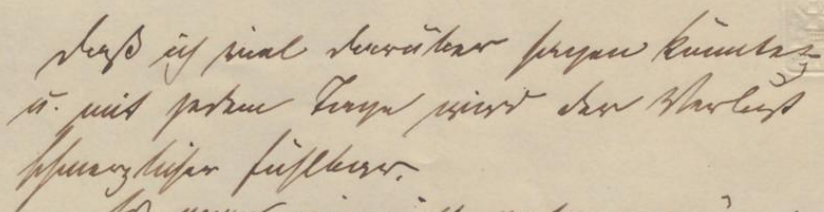 daß ich viel darüber sagen könnte,
u. mit jedem Tage wird der Verlust
schmerzlicher fühlbar.